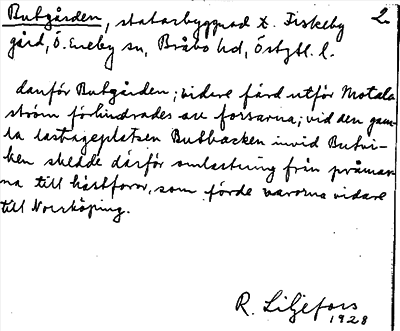 Rutgården, statarbyggnad t. Fiskeby 2.
gård, Ö. Eneby sn, Bråbo hd, Östgtl. l.
danför Butgården; vidare färd utför Motala
ström förhindrades av forsarna; vid den gam-
la lastageplatsen Butbacken invid Butvi-
ken skedde därför omlastning från pråmar-
na till hästforor, som förde varorna vidare
till Norrköping.
R. Liljefors
1928